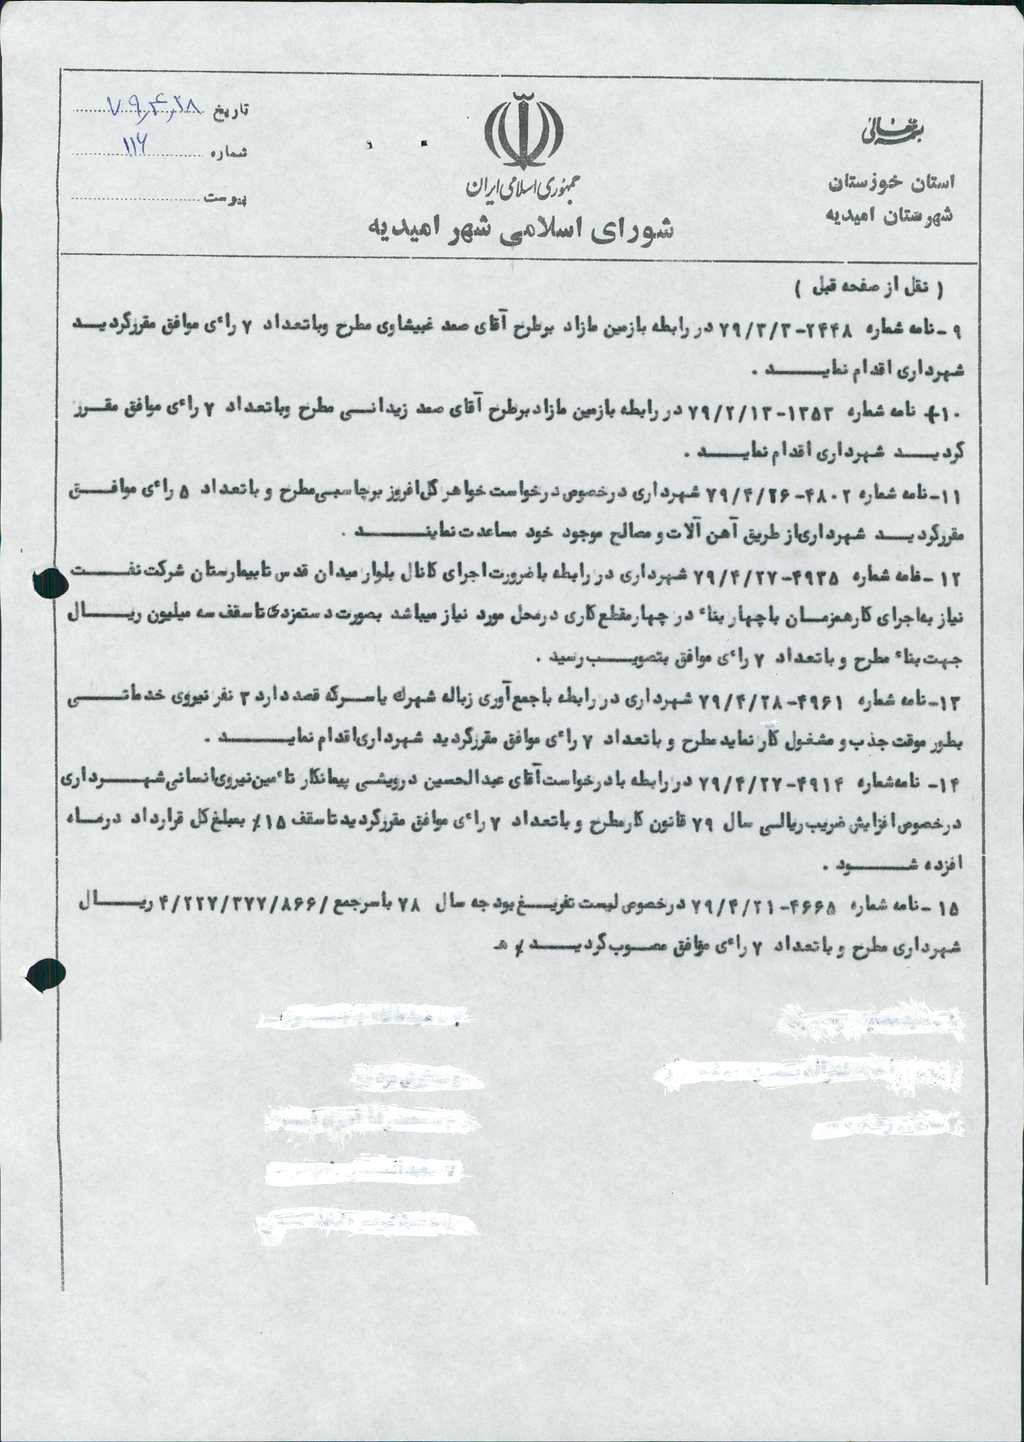 بسمه تعالی
استان خوزستان
شهرستان امیدیه
جمهوری اسلامی ایران
شورای اسلامی شهر امیدیه
تاریخ ۷۹٫۴٫۲۸
شماره ۱۱۶
پیوست
( نقل از صفحه قبل )
۹ -نامه شماره ۲۴۴۸-۷۹/۳/۳ در رابطه بازمین مازاد برطرح آقای صمد غبیشاوی مطرح وباتعداد ۷ راٴی موافق مقررگردید
شهرداری اقدام نماید .
۱۰+ نامه شماره ۱۳۵۳-۷۹/۲/۱۳ در رابطه بازمین مازاد برطرح آقای صمد زیدانی مطرح وباتعداد ۷ راٴی موافق مقرر
گردید شهرداری اقدام نماید .
۱۱-نامه شماره ۴۸۰۲-۷۹/۴/۲۶ شهرداری درخصوص درخواست خواهر گل افروز برچاسبی مطرح و باتعداد ۵ راٴی موافق
مقررگردید شهرداری از طریق آهن آلات و مصالح موجود خود مساعدت نمایند .
۱۲ -نامه شماره ۴۹۳۵-۷۹/۴/۲۷ شهرداری در رابطه با ضرورت اجرای کانال بلوار میدان قدس تا بیمارستان شرکت نفت
نیاز به اجرای کار همزمان با چهار بناء در چهار مقطع کاری در محل مورد نیاز میباشد بصورت دستمزدی تا سقف سه میلیون ریال
جهت بناء مطرح و باتعداد ۷ راٴی موافق بتصویب رسید .
۱۳-نامه شماره ۴۹۶۱-۷۹/۴/۲۸ شهرداری در رابطه با جمع آوری زباله شهرك پاسر که قصد دارد ۳ نفر نیروی خدماتی
بطور موقت جذب و مشغول کار نماید مطرح و باتعداد ۷ راٴی موافق مقررگردید شهرداری اقدام نماید .
۱۴- نامه شماره ۴۹۱۴-۷۹/۴/۲۷ در رابطه با درخواست آقای عبدالحسین درویشی پیمانکار تاٴمین نیروی انسانی شهرداری
درخصوص افزایش ضریب ریالی سال ۷۹ قانون کار مطرح و باتعداد ۷ راٴی موافق مقررگردید تا سقف ۱۵٪ بمبلغ کل قرارداد درماه
افزده شود .
۱۵ -نامه شماره ۴۶۶۵-۷۹/۴/۲۱ درخصوص لیست تفریغ بودجه سال ۷۸ باسرجمع /۴/۲۲۷/۳۷۷/۸۶۶ ریال
شهرداری مطرح و باتعداد ۷ راٴی موافق مصوب گردید ٪ هـ